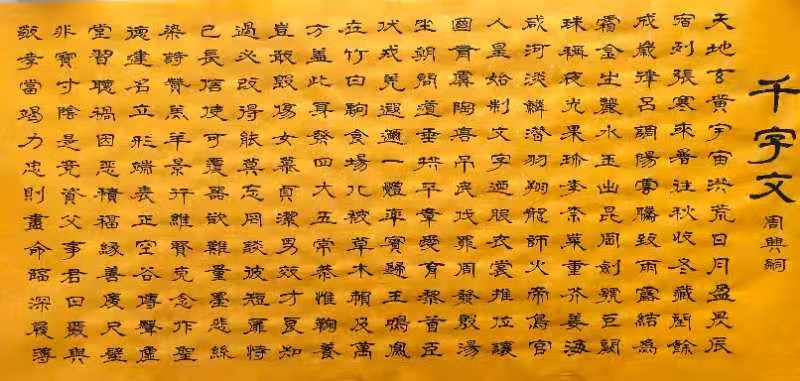 千字文
周興嗣
天地玄黃宇宙洪荒日月盈昃辰
宿列張寒來暑往秋收冬藏閏餘
成歲律呂調陽雲騰致雨露結為
霜金生麗水玉出昆岡劍號巨闕
珠稱夜光果珍李柰菜重芥姜海
咸河淡鱗潛羽翔龍師火帝鳥官
人皇始制文字迺服衣裳推位讓
國有虞陶唐弔民伐罪周發殷湯
坐朝問道垂拱平章愛育黎首臣
伏戎羌遐邇一體率賓歸王鳴鳳
在竹白駒食場化被草木賴及萬
方蓋此身髮四大五常恭惟鞠養
豈敢毀傷女慕貞潔男效才良知
過必改得能莫忘罔談彼短靡恃
己長信使可覆器欲難量墨悲絲
染詩贊羔羊景行維賢克念作聖
德建名立形端表正空谷傳聲虛
堂習聽禍因惡積福緣善慶尺璧
非寶寸陰是競資父事君曰嚴與
敬孝當竭力忠則盡命臨深履薄